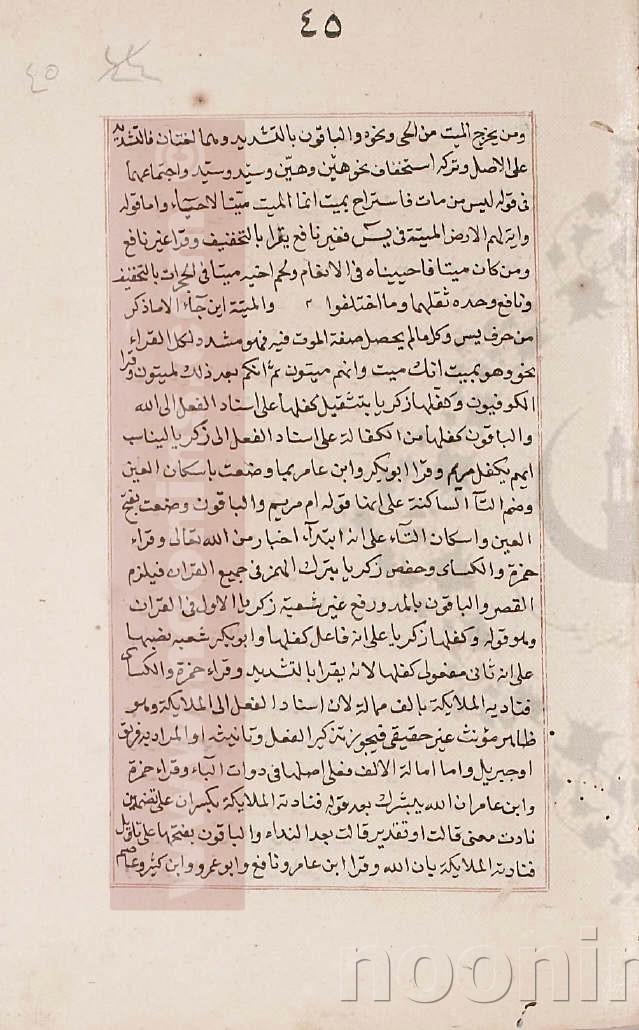 ٤٥
٤٥
ومن يخرج الميت من الحى ونحوه والباقون بالتشديد وهما لغتان فالتشديد
على الاصل وتركه استخفاف نحو هيّن وهين وسيّد وسيد واجتماعهما
فى قوله ليس من مات فاستراح بميت انما الميت ميّت الاحياء واما قوله
واية لهم الارض الميتة فى يس فغير نافع يقرا بالتخفيف وقرا غير نافع
ومن كان ميتا فاحييناه فى الانعام ولحم اخيه ميتا فى الحجرات بالتخفيف
ونافع وحده ثقلهما وما اختلفوا والميتة اين جاء الا ما ذكر
من حرف يس وكل ما لم يحصل صفة الموت فيه فهو مشدد لكل القراء
نحو وهو بميت انك ميت وانهم ميتون ثم انكم بعد ذلك لميتون وقرا
الكوفيون وكفّلها زكريا بتثقيل كفلها على اسناد الفعل الى الله
والباقون كفلها من الكفالة على اسناد الفعل الى زكريا ليناسب
ايهم يكفل مريم وقرا ابوبكر وابن عامر بما وضعت باسكان العين
وضم التآ الساكنة على انها قوله ام مريم والباقون وضعت بفتح
العين واسكان التآء على انه ابتدآء اخبار من الله تعالى وقراء
حمزة والكساى وحفص زكريا بترك الهمز فى جميع القران فيلزم
القصر والباقون بالمد ورفع غير شعبة زكريا الاول فى القران
وهو قوله وكفلها زكريا على انه فاعل كفلها وابوبكر شعبه نصبها
على انه ثانى مفعولى كفلها لانه يقرا بالتشديد وقراء حمزة والكساى
فناديه الملايكة بالف ممالة لان اسناد الفعل الى الملايكة وهو
ظاهر مؤنث غير حقيقى فيجوز تذكير الفعل وتانيثه او المراد به فريق
او جبريل واما امالة الالف فعلى اصلها فى دوات الياء وقراء حمزة
وابن عامر ان الله يبشرك بعد قوله فنادته الملايكة بكسر ان على تضمين
نادت معنى قالت او تقدير قالت بعد النداء والباقون بفتحها على تاويل
فنادته الملايكة بان الله وقرا ابن عامر ونافع وابو عمرو وابن كثير وعاصم
noonin